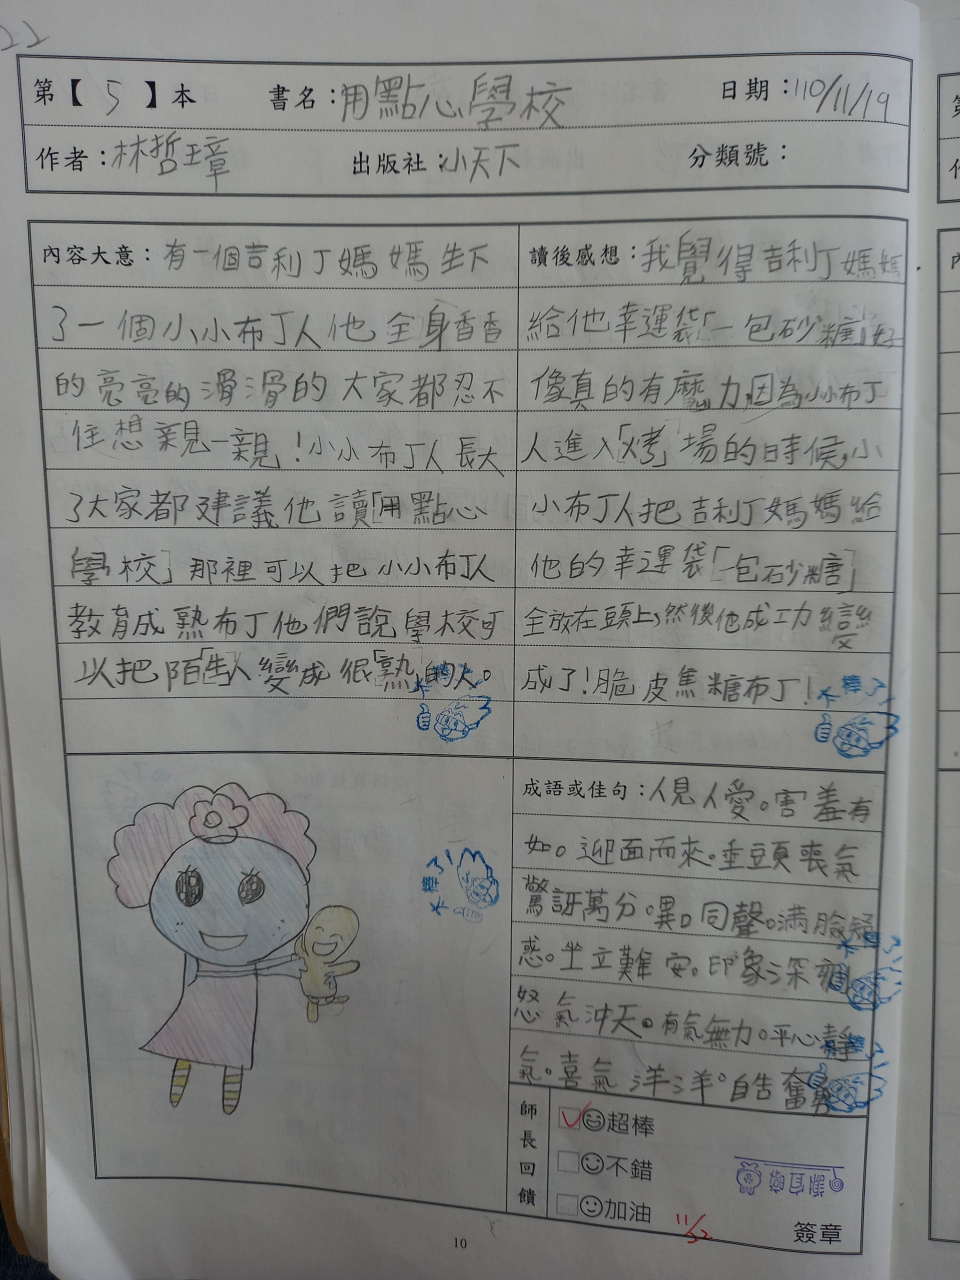 22
第【 5 】本 書名：用點心學校 日期：110/11/19
作者：林哲璋 出版社：小天下 分類號：
內容大意：有一個吉利丁媽媽生下
了一個小小布丁人他全身香香
的亮亮的滑滑的大家都忍不
住想親一親！小小布丁人長大
了大家都建議他讀「用點心
學校」那裡可以把小小布丁人
教育成熟布丁他們說學校可
以把陌「生」人變成很「熟」的人。
太棒了!
讀後感想：我覺得吉利丁媽媽
給他幸運袋「一包砂糖」好
像真的有魔力,因為小小布丁
人進入「烤」場的時候,小
小布丁人把吉利丁媽媽給
他的幸運袋「一包砂糖」
全放在頭上,然後他成功變
成了！脆皮焦糖布丁！
太棒了!
太棒了!
成語或佳句：人見人愛。害羞有
如。迎面而來。垂頭喪氣
驚訝萬分。異。同聲。滿臉疑
惑。坐立難安。印象深
怒氣沖天。有氣無力。平心靜
氣。喜氣洋洋。自告奮勇
師長回饋
超棒
不錯
加油
11/22
簽章
10